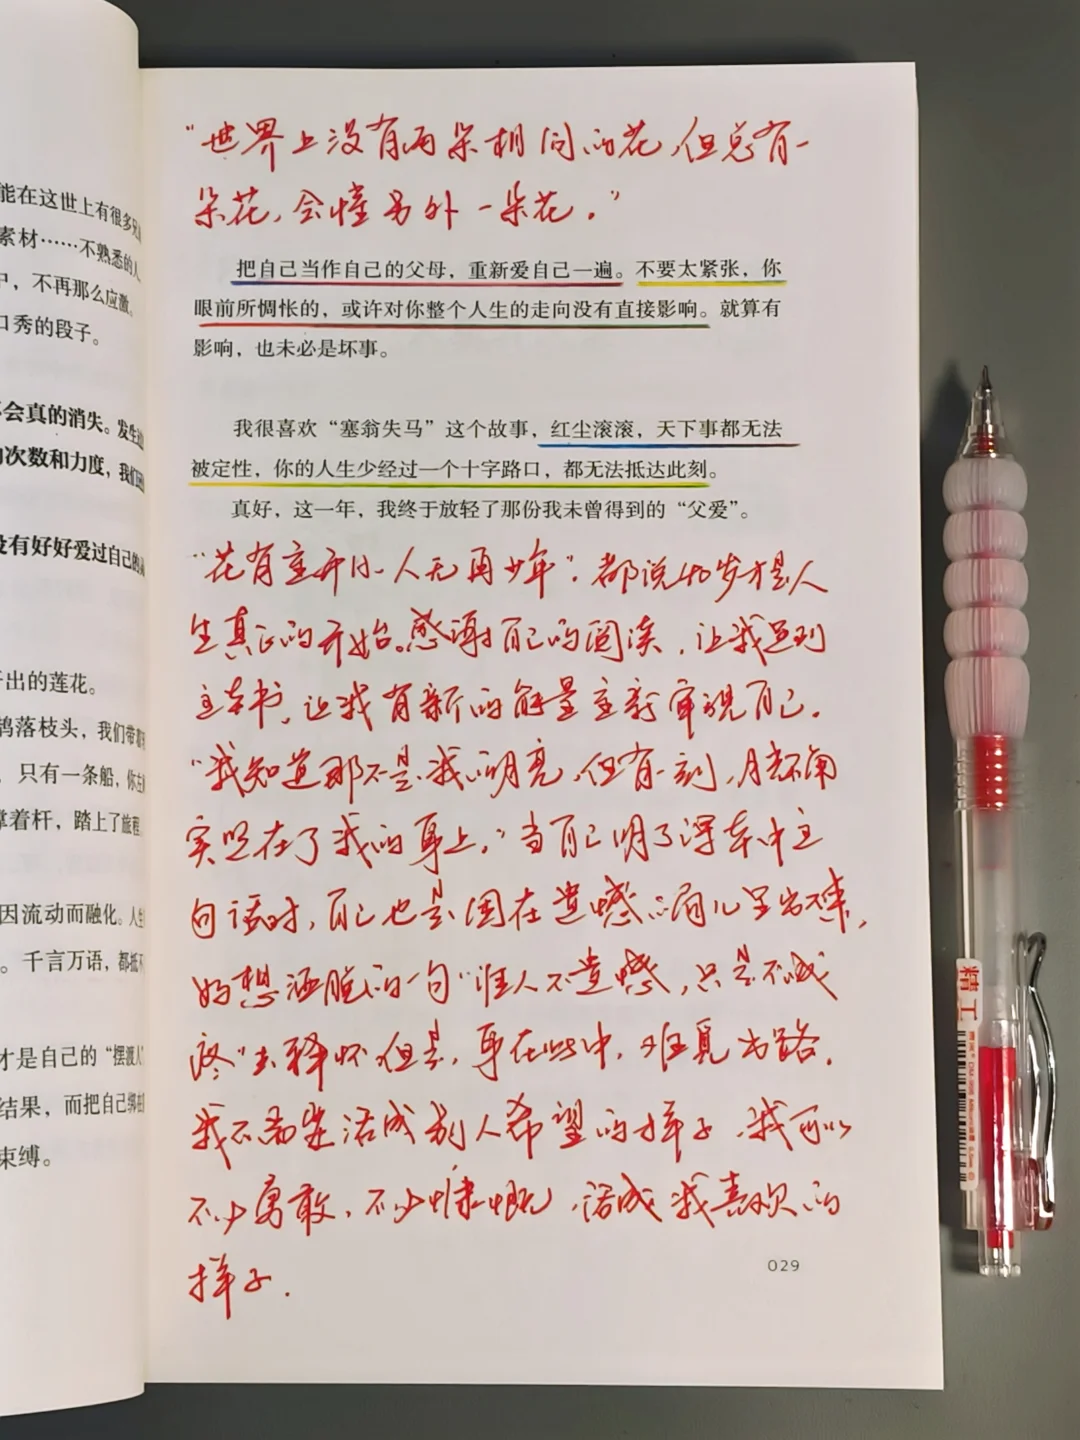 能在这世上有很多
素材……不熟悉的人
，不再那么应激。
口秀的段子。
会真的消失。发生
次数和力度，我们
没有好好爱过自己的
开出的莲花。
鸽落枝头，我们带
只有一条船，你
撑着杆，踏上了旅程
因流动而融化。人生
。千言万语，都抵不
才是自己的“摆渡人”
结果，而把自己绑在
束缚。
“世界上没有两朵相同的花，但总有一
朵花，会懂另外一朵花。”
把自己当作自己的父母，重新爱自己一遍。不要太紧张，你
眼前所惆怅的，或许对你整个人生的走向没有直接影响。就算有
影响，也未必是坏事。
我很喜欢“塞翁失马”这个故事，红尘滚滚，天下事都无法
被定性，你的人生少经过一个十字路口，都无法抵达此刻。
真好，这一年，我终于放轻了那份我未曾得到的“父爱”。
“花有重开日，人无再少年”。都说40岁才是人
生真正的开始。感谢自己的阅读，让我遇到
这本书，让我有新的能量重新审视自己。
“我知道那不是我的月亮，但有一刻，月亮确
实照在了我的身上。”当自己明了课本中这
句话时，自己也是困在遗憾的洞儿里出不来，
好想洒脱的一句“谁人不遗憾，只是不喊
疼”去释怀，但是，身在此中，难觅出路。
我不需要活成别人希望的样子，我可以
不少勇敢，不少慷慨，活成我喜欢的
样子.
029
精工